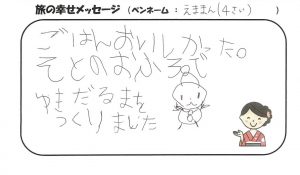 旅の幸せメッセージ （ペンネーム：えきまん（4さい）　）
ごはんおいしかった。
そとのおふろで
ゆきだるまを
つくりました